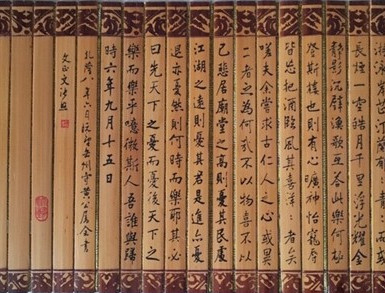 長煙一空皓月千里浮光耀金
靜影沉璧漁歌互答此樂何極
登斯樓也則有心曠神怡寵辱
皆忘把酒臨風其喜洋〻者矣
嗟夫余嘗求古仁人之心或異
二者之為何哉不以物喜不以
己悲居廟堂之高則憂其民處
江湖之遠則憂其君是進亦憂
退亦憂然則何時而樂耶其必
曰先天下之憂而憂後天下之
樂而樂乎噫微斯人吾誰與歸
時六年九月十五日
乾隆八年六月州守黃公屬書